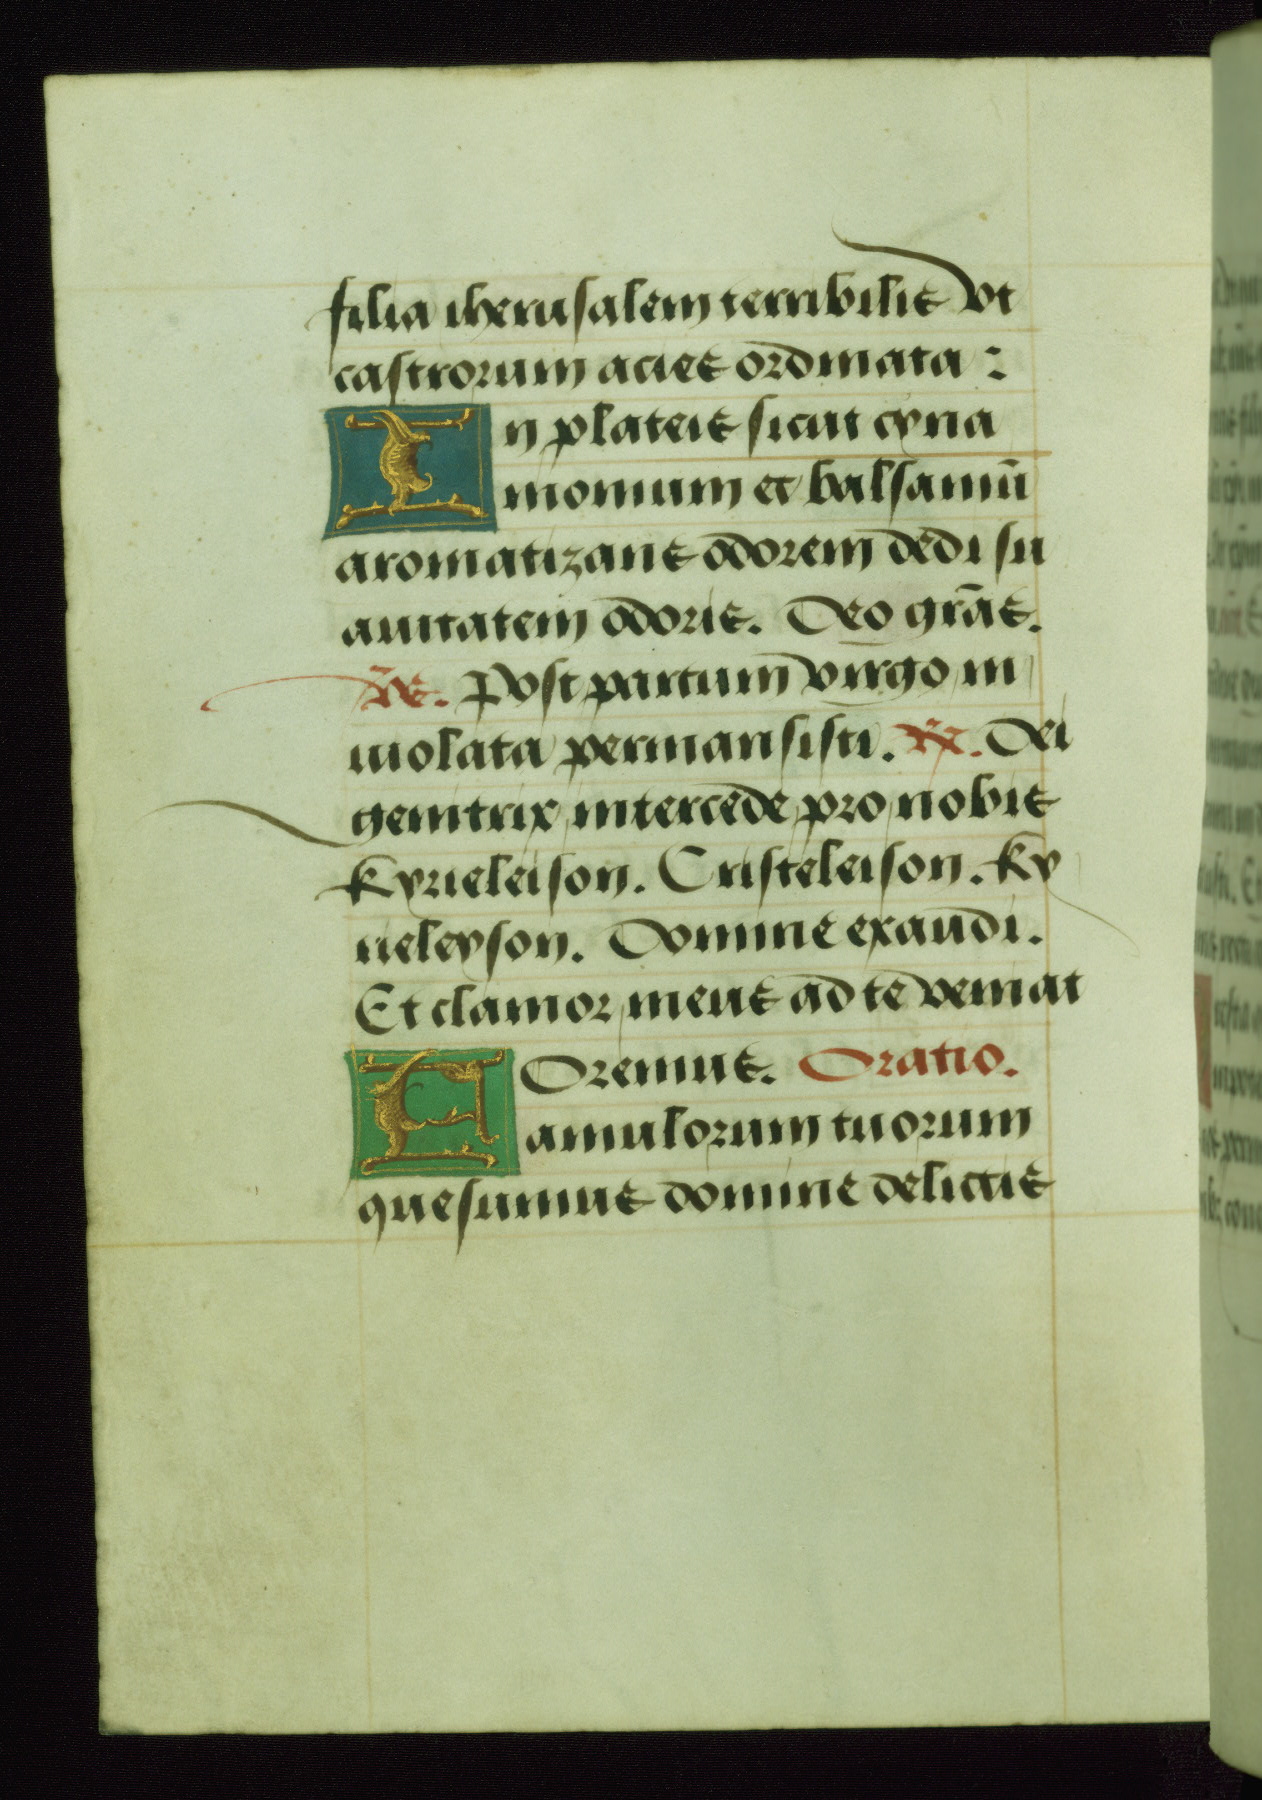 filia iherusalem terribilis vt
castrorum acies ordinata :
In plateis sicut cyna
momum et balsamū
aromatizans odorem dedi su
auitatem odoris. Deo grās.
℣. Post partum virgo in
uiolata permansisti. ℟. Dei
genitrix intercede pro nobis
Kyrieleison. Cristeleison. Ky
rieleyson. Domine exaudi.
Et clamor meus ad te veniat
Oremus. Oratio.
Famulorum tuorum
quesumus domine delictis